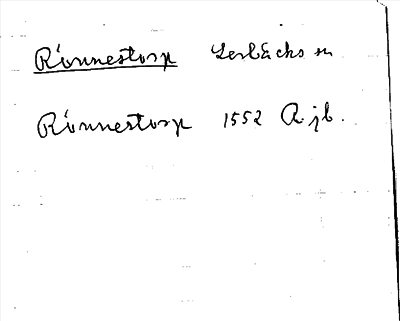 Rönnestorp Lerbäcks sn
Rönnestorp 1552 A jb.